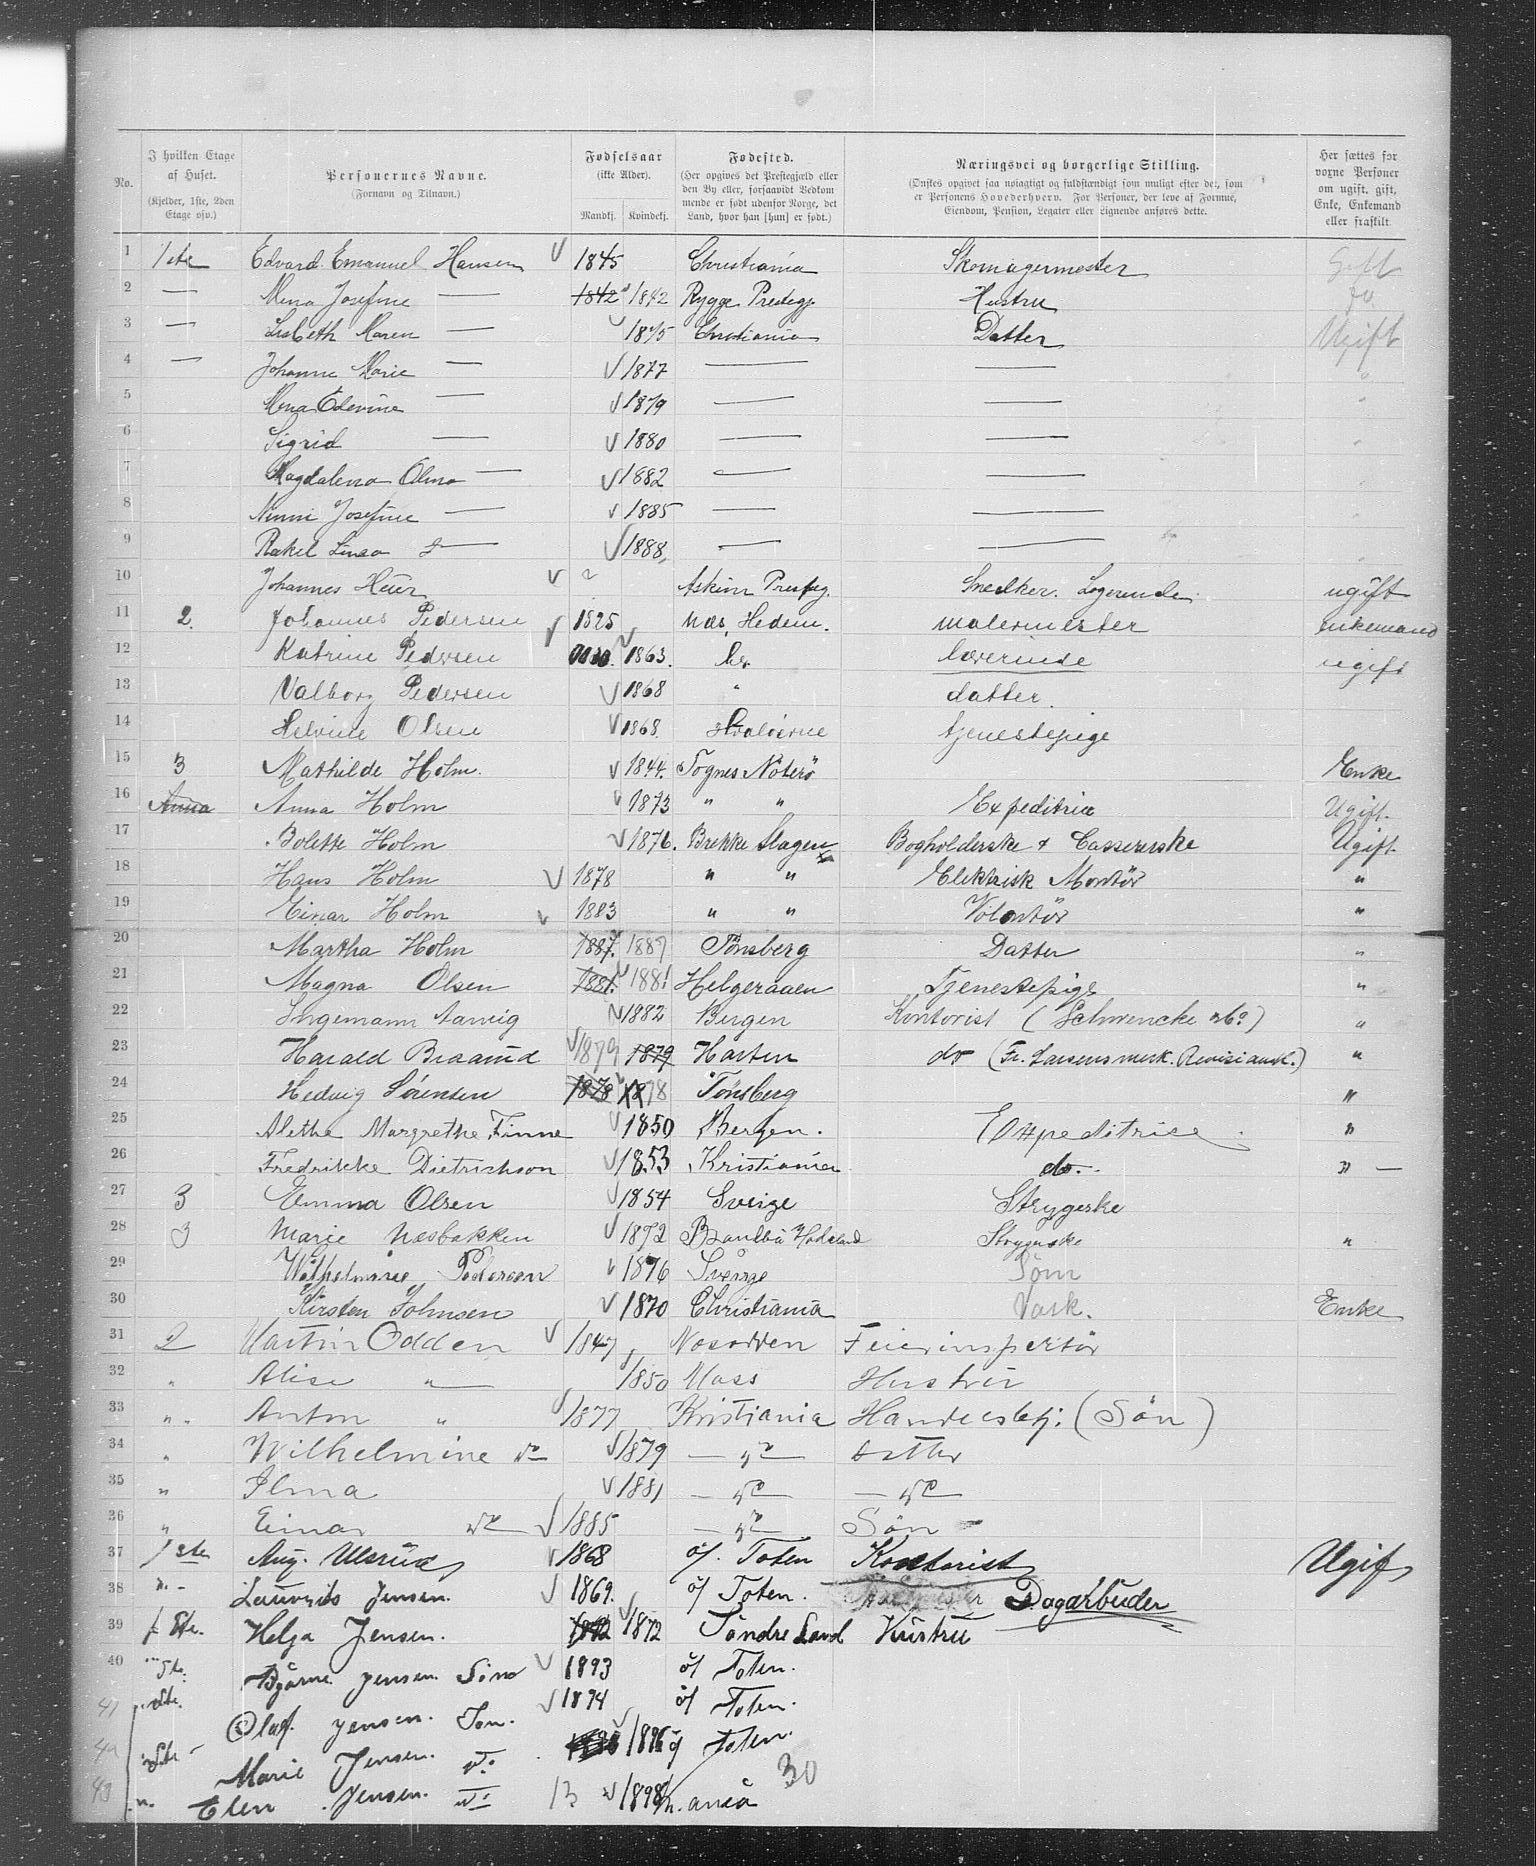 No.
I hvilken Etage af Huset.
(Kjelder, 1ste, 2den Etage osv.)
Personernes Navne.
(Fornavn og Tilnavn.)
Fødselsaar
(ikke Alder).
Mandkj. Kvindekj.
Fødested.
(Her opgives det Prestegjæld eller den By eller, forsaavidt Vedkommende er født udenfor Norge, det Land, hvor han [hun] er født.)
Næringsvei og borgerlige Stilling.
(Ønskes opgivet saa nøiagtigt og fuldstændigt som muligt efter det, som er Personens Hovederhverv. For Personer, der leve af Formue, Eiendom, Pension, Legater eller Lignende anføres dette.
Her sættes for voxne Personer om ugift, gift, Enke, Enkemand eller fraskilt.
1 1ste Edvard Emanuel Hansen 1845 Christiania Skomagermester Gift
2 — Mina Josefine — 1842 1842 Rygge Prestegj. Hustru
3 — Lisbeth Maren — 1875 Christiania Datter Ugift
4 — Johanne Marie — 1877 — — "
5 Mina Edevine — 1879 — — "
6 Sigrid — 1880 — — "
7 Magdalena Olma — 1882 — —
8 Ninni Josefine — 1885 — —
9 Rakel Linea — 1888 — —
10 Johannes Heier Askim Prestg. Snedker. Logerende ugift
11 2. Johannes Pedersen 1825 Næs, Hedem. malermester enkemand
12 Katrine Pedersen 1863. her lærerinde ugift
13 Valborg Pedersen 1868 " datter.
14 Helvine Olsen 1868. Hvaløerne tjenestepige
15 3 Mathilde Holm. 1844. Tognes Nøterø Enke
16 Anna Anna Holm 1873 " " Expeditrice Ugift.
17 Bolette Holm 1876. Brekke Slagen Bogholderske & Cassererske Ugift
18 Hans Holm 1878 " " Elektrisk Montør "
19 Einar Holm 1883 " " Volontør "
20 Martha Holm 1887. 1887 Tønsberg Datter "
21 Magna Olsen 1881. 1881 Helgeraaen Tjenestepige "
22 Ingemann Aarvig 1882 Bergen Kontorist (Schwencke & Co) "
23 Harald Braarud 1879 1879 Horten do (Fr. Larsens merk. Revisiansk.) "
24 Hedvig Sørensen 1878 1878 Tønsberg "
25 Alethe Margrethe Finne 1850 Bergen. Expeditrice. "
26 Fredrikke Dietrichson 1853 Kristiania do. " —
27 3 Emma Olsen 1854 Sverige Strygerske
28 3 Marie Næsbakken 1872 Brandbu Hadeland Strygerske "
29 Wilhelmine Pedersen 1876 Sverige Søm
30 Kirsten Johnsen 1870 Christiania Vask. Enke
31 2 Martin Odden 1847 Nesodden Feierinspektør
32 " Alise " 1850 Moss Hustru
33 " Anton " 1877 Kristiania Handelsbtj. (Søn)
34 " Wilhelmine do 1879 — do — datter
35 " Ilma 1881 — do — — do —
36 " Einar do 1885 — do — Søn
37 1ste Aug. Ulsrud 1868 ø/. Toten Kontorist Ugift
38 " Lauvrits Jensen. 1869. ø/ Toten. Dagarbuder
39 1ste. Helga Jensen. 1872 1872 Søndre Land Hustru
40 " ste. Bjarne Jensen. Sønn 1893 ø/ Toten.
41 ste. Olaf. Jensen. Søn. 1894 ø/ Toten.
42 ste Marie Jensen. do. 1896 ø/ Toten.
43 ". Elen Jensen. do. 13 1898 Kr.ania 30